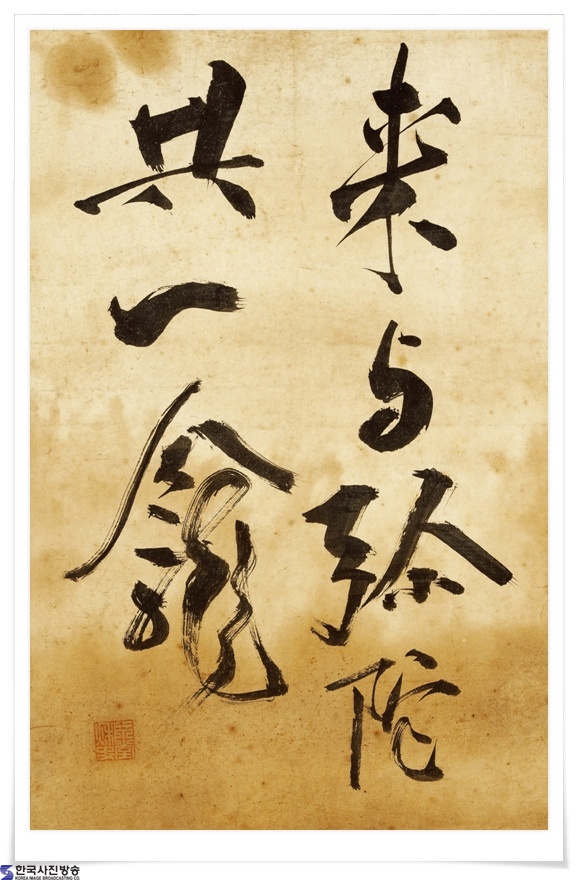 来与弥陀
共一龕
한국사진방송
KOREA IMAGE BROADCASTING CO.